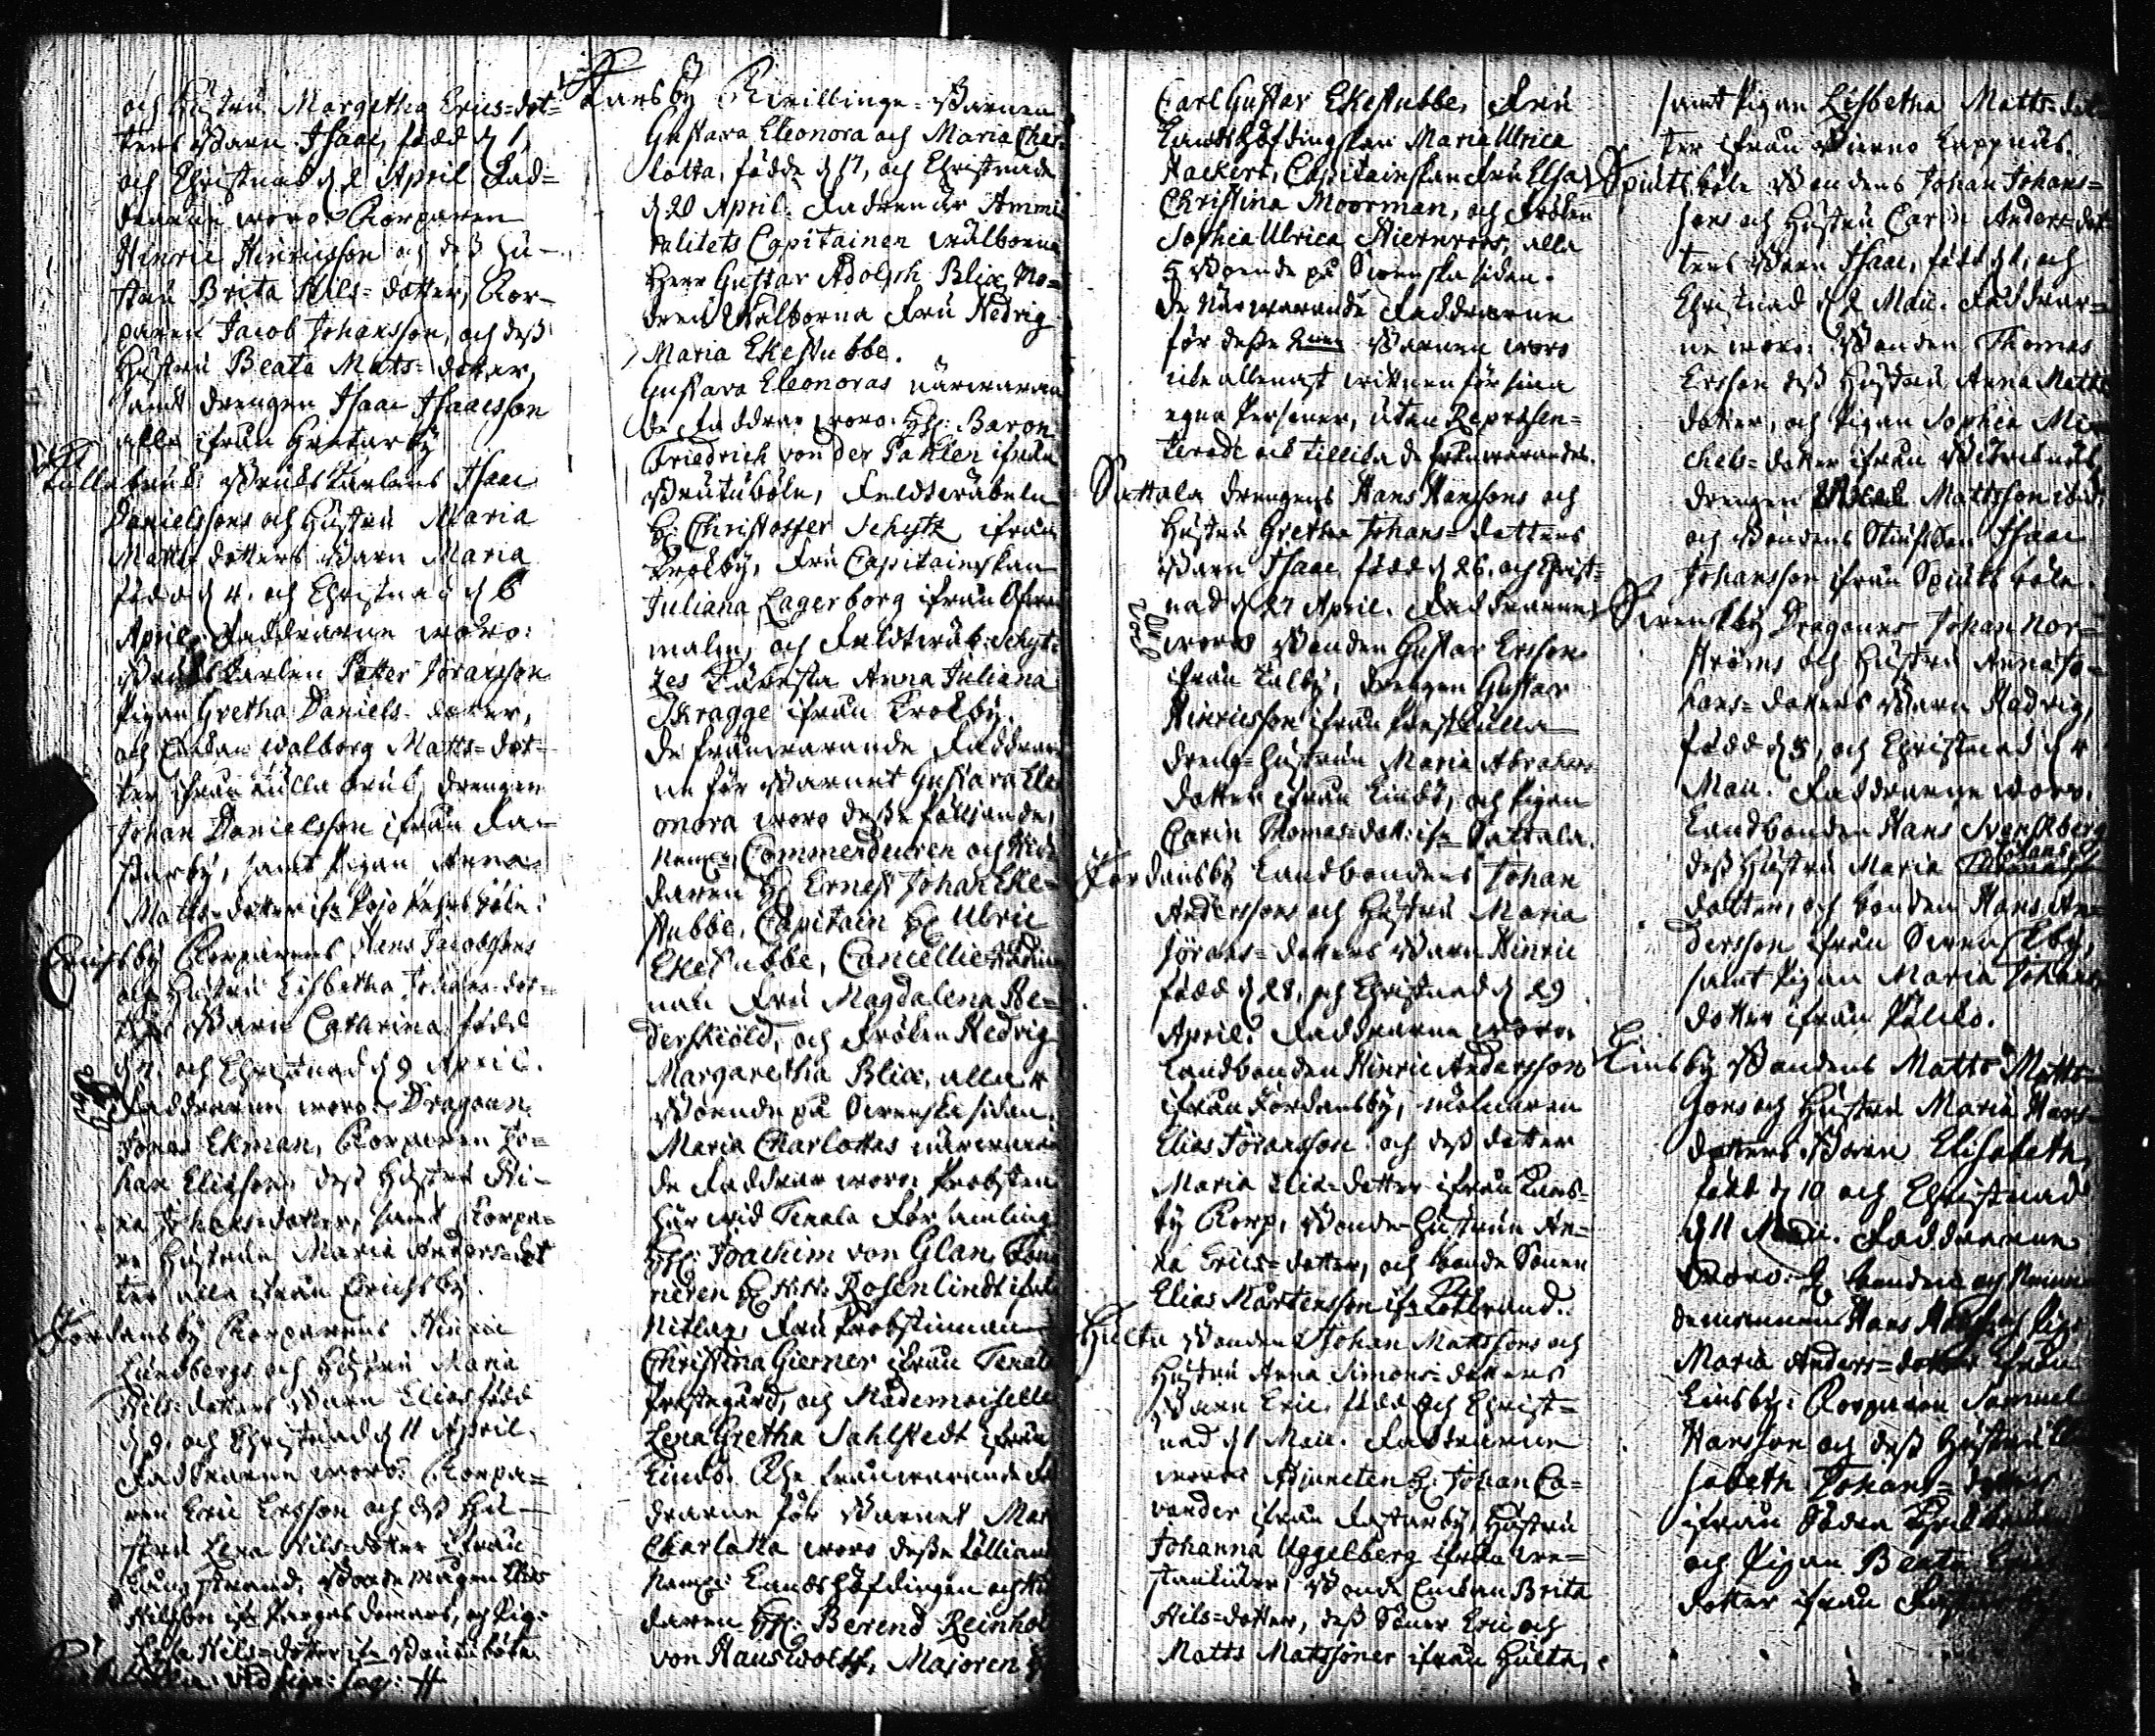 och Hustru Margetha Erics=dot=
ters Barn Isaac, född d 1,
och Christnad d 2 April. Fad=
drarne woro Torparen
Hinric Hinricsson och dess Hu-
stru Brita Nils=dotter, Tor-
paren Jacob Johansson, och dess
Hustru Beata Mats=dotter,
samt drengen Isaac Isaacsson
alla ifrån
Bruks Karlens Isaac
Danielssons och Hustru Maria
Matts dotters Barn Maria
född d 4. och Christnad d 6
April. Faddrarne woro:
Bruks Karlen Petter Joransson
Pigan Gretha Daniels dotter,
och Enkan Walborg Matts=dot=
ter ifrån Kulla bruk, drengen
Johan Danielsson ifrån Fa-
starby, samt Pigan Anna
Matts=dotter ifr. Pojo
Erichsby Torparens Hans Jacobssons
och Hustru Lisbetha Johans=dot=
ters Barn Cathrina född
d 7. och Christnad d 9 April.
Faddrarne woro: Dragoun
Jonas Ekman, Torparen Jo=
han Eliesson, dess Hustru
Johans=dotter, samt Torpa=
re Hustrun Maria Anders=dot
ter alla ifrån Erichsby.
Fördansby Torparens Hinric
Lundbergs och Hustru Maria
Nils=dotters Barn Elias född
d 9. och Christnad d 11 April.
Faddrarne woro: Torpa=
ren Eric Ersson och dess Hu-
stru Lena Nils=dotter ifrån
strand, Bonde
Nilsson ifr.
Lisa Nils=dotter ifr.
Karsby Twillinge=Barnen
Gustava Eleonora och Maria Char
lotta, födde d 17, och Christnade
d 20 April. Fadren är Ammi=
ralitets Capitainen Wälborne
Herr Gustav Adolph Blix, Mo=
dren Wälborna Fru Hedvig
Maria Ekestubbe.
Gustava Eleonoras närwaran
de Faddrar woro: H: Baron
Friedrich von der Pahlen ifrån
Brutuböle, Feldtwäbeln
H: Christoffer Schytz ifrån
Trolby, Fru Capitainskan
Juliana Lagerborg ifrån
malm, och Feldtwäb: Schyt=
zes Käresta Anna Juliana
Skragge ifrån Trolby.
De frånwarande Faddrar
ne för Barnet Gustava Ele
onora woro desse följande,
Nempl: Commendeuren och Rid
daren H: Ernest Johan Eke=
stubbe, Capitain H: Ulric
Ekestubbe, Cancellie=Rådin
nan Fru Magdalena He=
derskiöld, och Fröken Hedvig
Margaretha Blix, alla 4
Boende på Swenska sidan.
Maria Charlottas närwaran
de Faddrar woro: Probsten
här wid Tenala Församling
H: Joachim von Glan,
H: Rosenlindt ifrån
Nitlax, Fru Probstinnan
Christina Gierner ifrån Tenala
Prestegård, och Mademoiselle
Lena Gretha Sahlstedt ifrån
Lindö. The frånwarande Fa
drarne för Barnet Mar
Charlotta woro desse följan
Nempl: Landshöfdingen och Ri
daren H: Berend Reinhol
von Hauswolff, Majoren H
Carl Gustav Ekestubbe, Fru
Landshöfdingskan Maria Ulrica
Hackert, Capitainskan Fru Elsa
Christina Moorman, och Fröken
Sophia Ulrica Stiernroos, alla
5 Boende på Swenska sidan.
De Närwarande Faddrarne
för desse Barnen woro
icke allenast witnen för sina
egna Personer, utan Represen=
terade ock tillika de frånwarande.
Sattala drengens Hans Hanssons och
Hustru Gretha Johans=dotters
Barn Isaac född d 26. och Christ=
nad d 27 April. Faddrarne
woro Bonden Gustav Ersson
ifrån Kälby, drengen Gustav
Hinricsson ifrån Prestkulla
dreng=Hustrun Maria Abrahams
dotter ifrån Lindö, och Pigan
Carin Thomas=dott: ifr. Sattala.
Fördansby Landbondens Johan
Anderssons och Hustru Maria
Jörans=dotters Barn Hinric
född d 28. och Christnad d 29
April. Faddrarne woro:
Landbonden Hinric Andersson
ifrån Fördansby, mölnaren
Elias Joransson och dess dotter
Maria Elia=dotter ifrån Kars=
by Torp, Bonde=Hustrun An=
na Erics=dotter, och bonde Sonen
Elias Mårtensson ifr.
Hulta Bondens Johan Mattssons och
Hustru Anna Simons=dotters
Barn Eric, född och Christ=
nad d 1 Maii. Faddrarne
woro: Adjuncten H: Johan Ca=
vander ifrån Fastarby, Hustru
Johanna Uggelberg ifrån
Bonde Enkan Brita
Nils=dotter, dess Söner Eric och
Matts Matssöner ifrån Hulta,
samt Pigan Lisbetha Matts=dot
ter ifrån
Spiutsböle Bondens Johan Johans=
sons och Hustru Carin Anders=dot
ters Barn Isaac, född d 1, och
Christnad d 2 Maii. Faddrar=
ne woro: Bonden Thomas
Ersson dess Hustru Anna Matts
dotter, och Pigan Sophia Mi
chels=dotter ifrån
drengen Mattsson
och Bondens Isaac
Johansson ifrån Spiutsböle.
Svenskby Dragouns Johan Nor=
ströms och Hustru Anna Jo=
hans=dotters Barn Hedvig,
född d 3, och Christnad d 4
Maii. Faddrarne woro,
Landbonden Hans Svenskberg
dess Hustru Maria Johans
dotter, och bonden Hans An=
dersson ifrån Svenskby,
samt Pigan Maria Johans
dotter ifrån
Linsby Bondens Matts Matts=
sons och Hustru Maria Hans=
dotters Barn Elisabeth,
född d 10 och Christnad
d 11 Maii. Faddrarne
woro: bonden och
Hans och Pig:
Maria Anders=dotter ifrån
Linsby: Torparen Samuel
Hansson och dess Hustru
sabeth Johans=dotter
ifrån Södra
och Pigan Beata
dotter ifrån